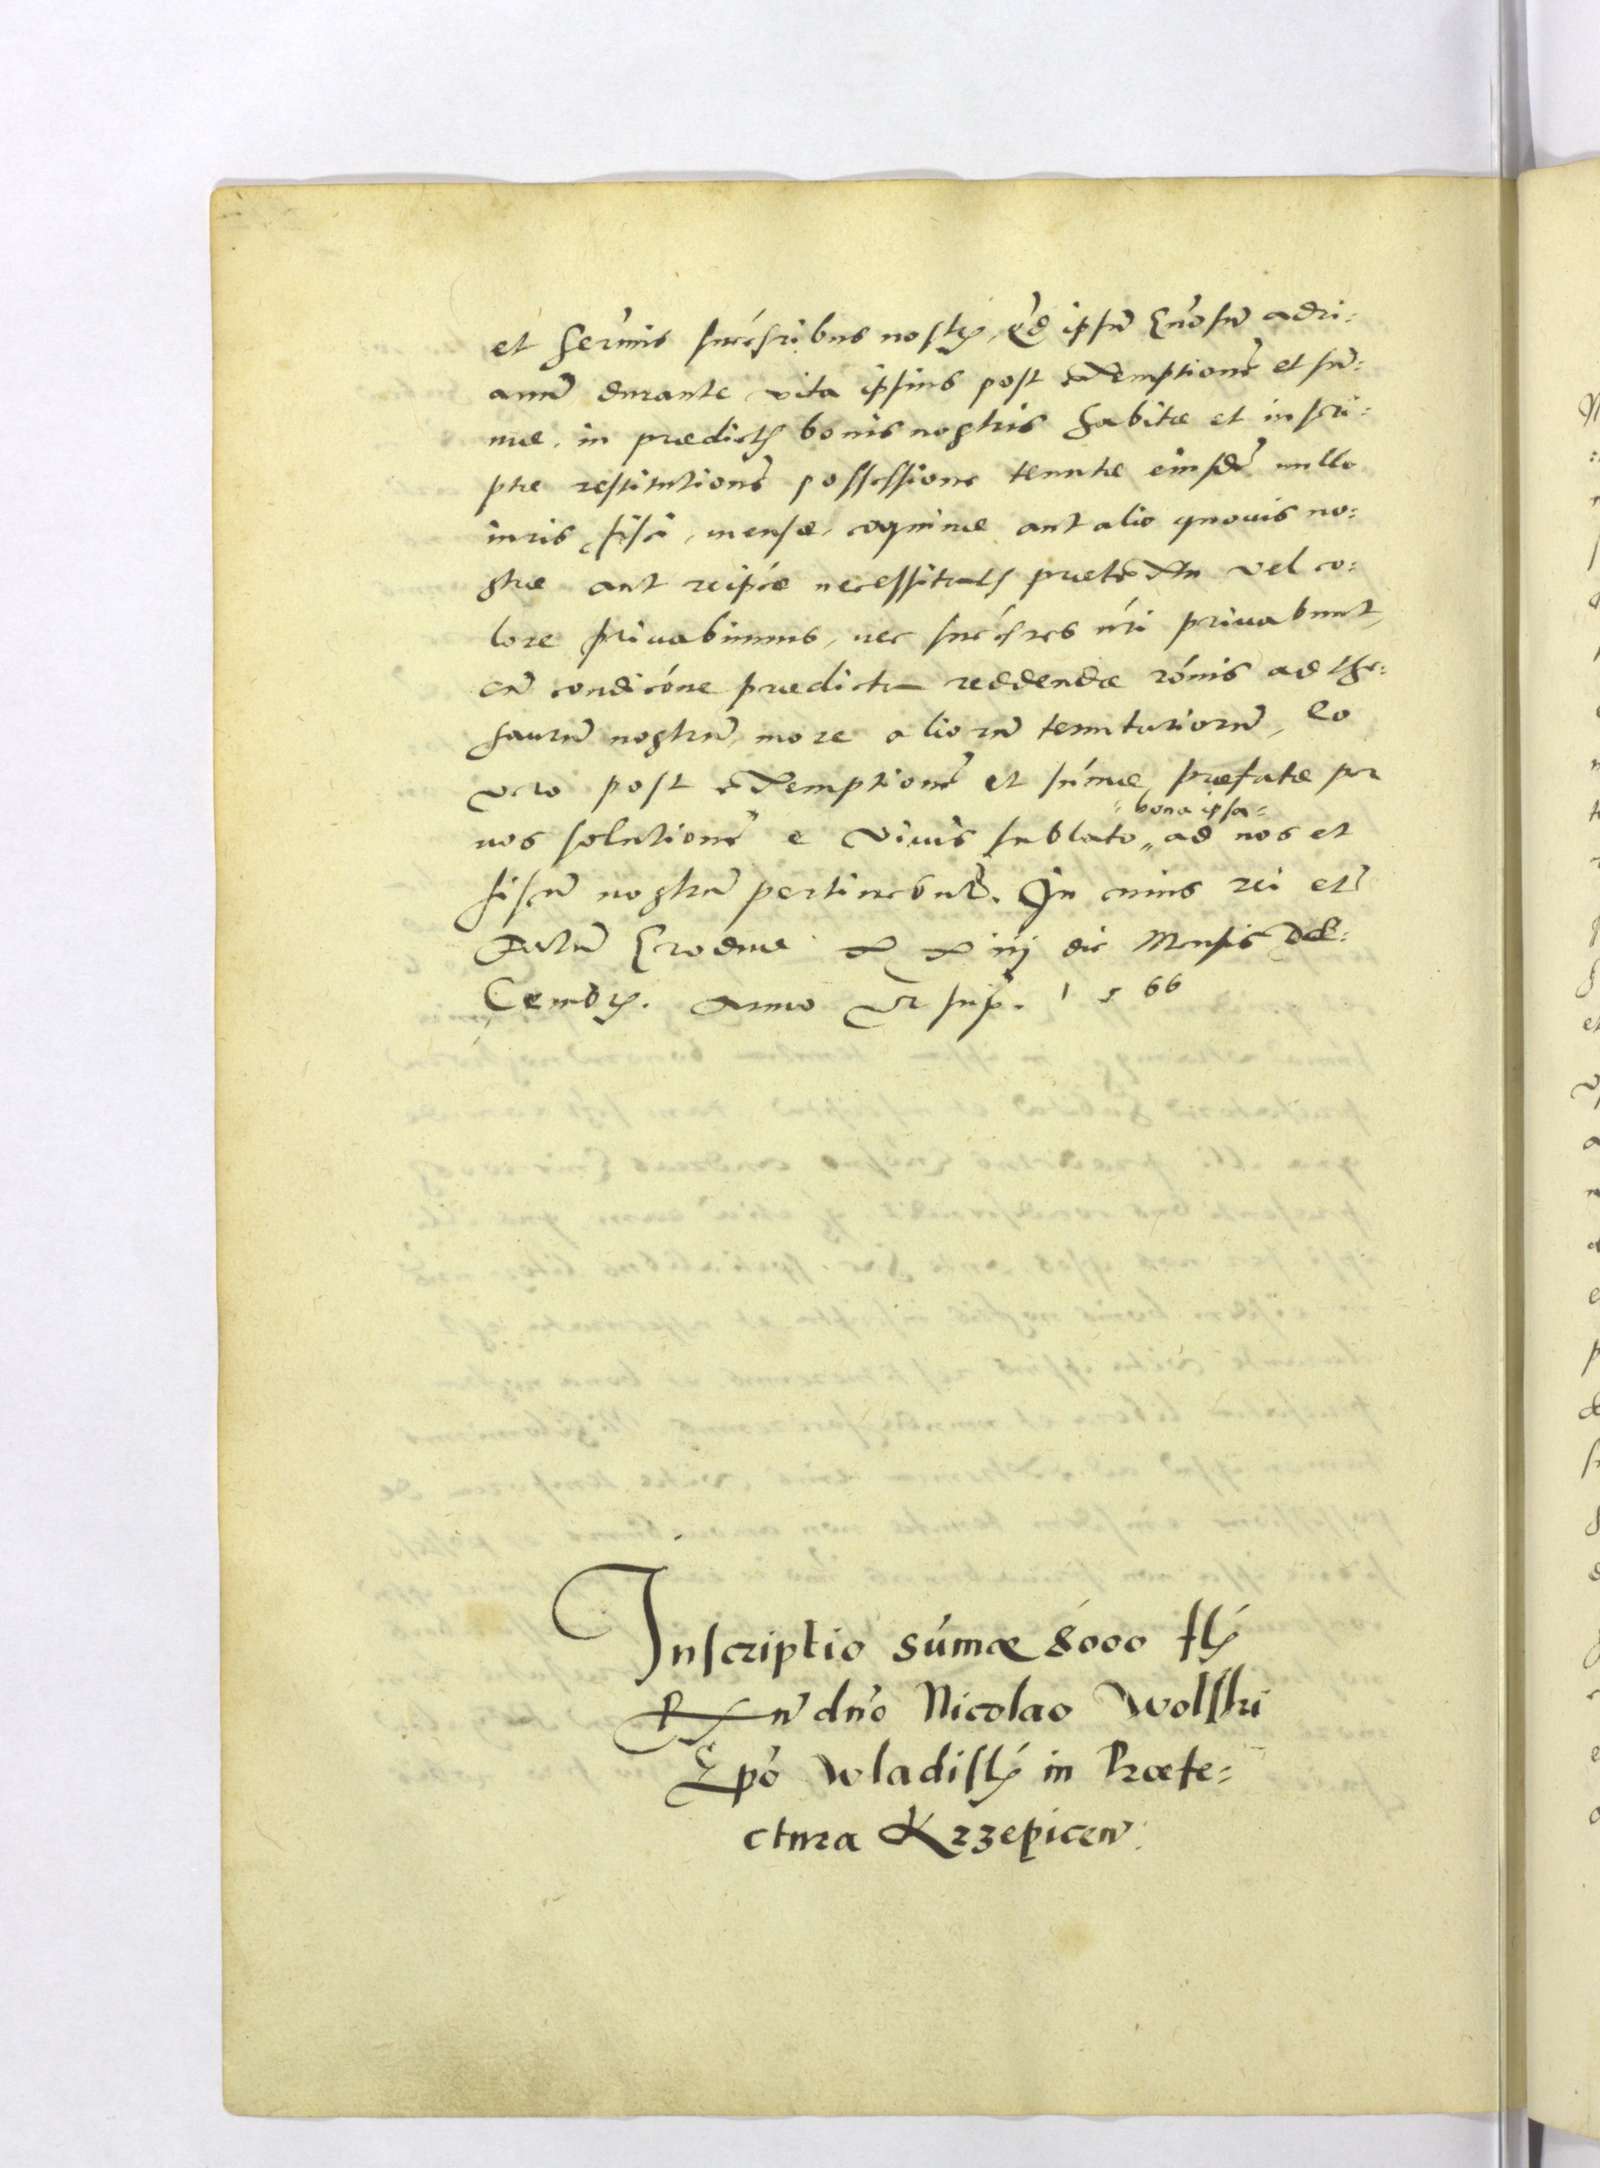 et serenis succesribus nostris, qd ipsum Gnosum adri=
anum durante vita ipsius post exemptionem et sum=
mae, in praedictis bonis nostris habitae et inscri=
ptae restitutionem possessione tenutae eiusdem nullo
iuris, fisci, mensae, coquinae aut alio quouis no=
strae aut reipcae necessitatis praetextu vel co=
lore priuabimus, nec succsres nri priuabunt,
cum condicone praedicta reddendae ronis ad the=
saurum nostrum, more aliorum tenutariorum, Eo
vero post exemptionem et summae praefatae per
nos solutionem e viuis sublato, "bona ipsa" ad nos et
fiscum nostrum pertinebunt. In cuius rei etc
Datum Grodnae XXiiij die Mensis De=
Cembris. Anno Vt supra. 1566
Inscriptio sumae 8000 flor
Rndo dno Nicolao Wolski
Epo Wladisl in Praefe=
ctura Krzepicen